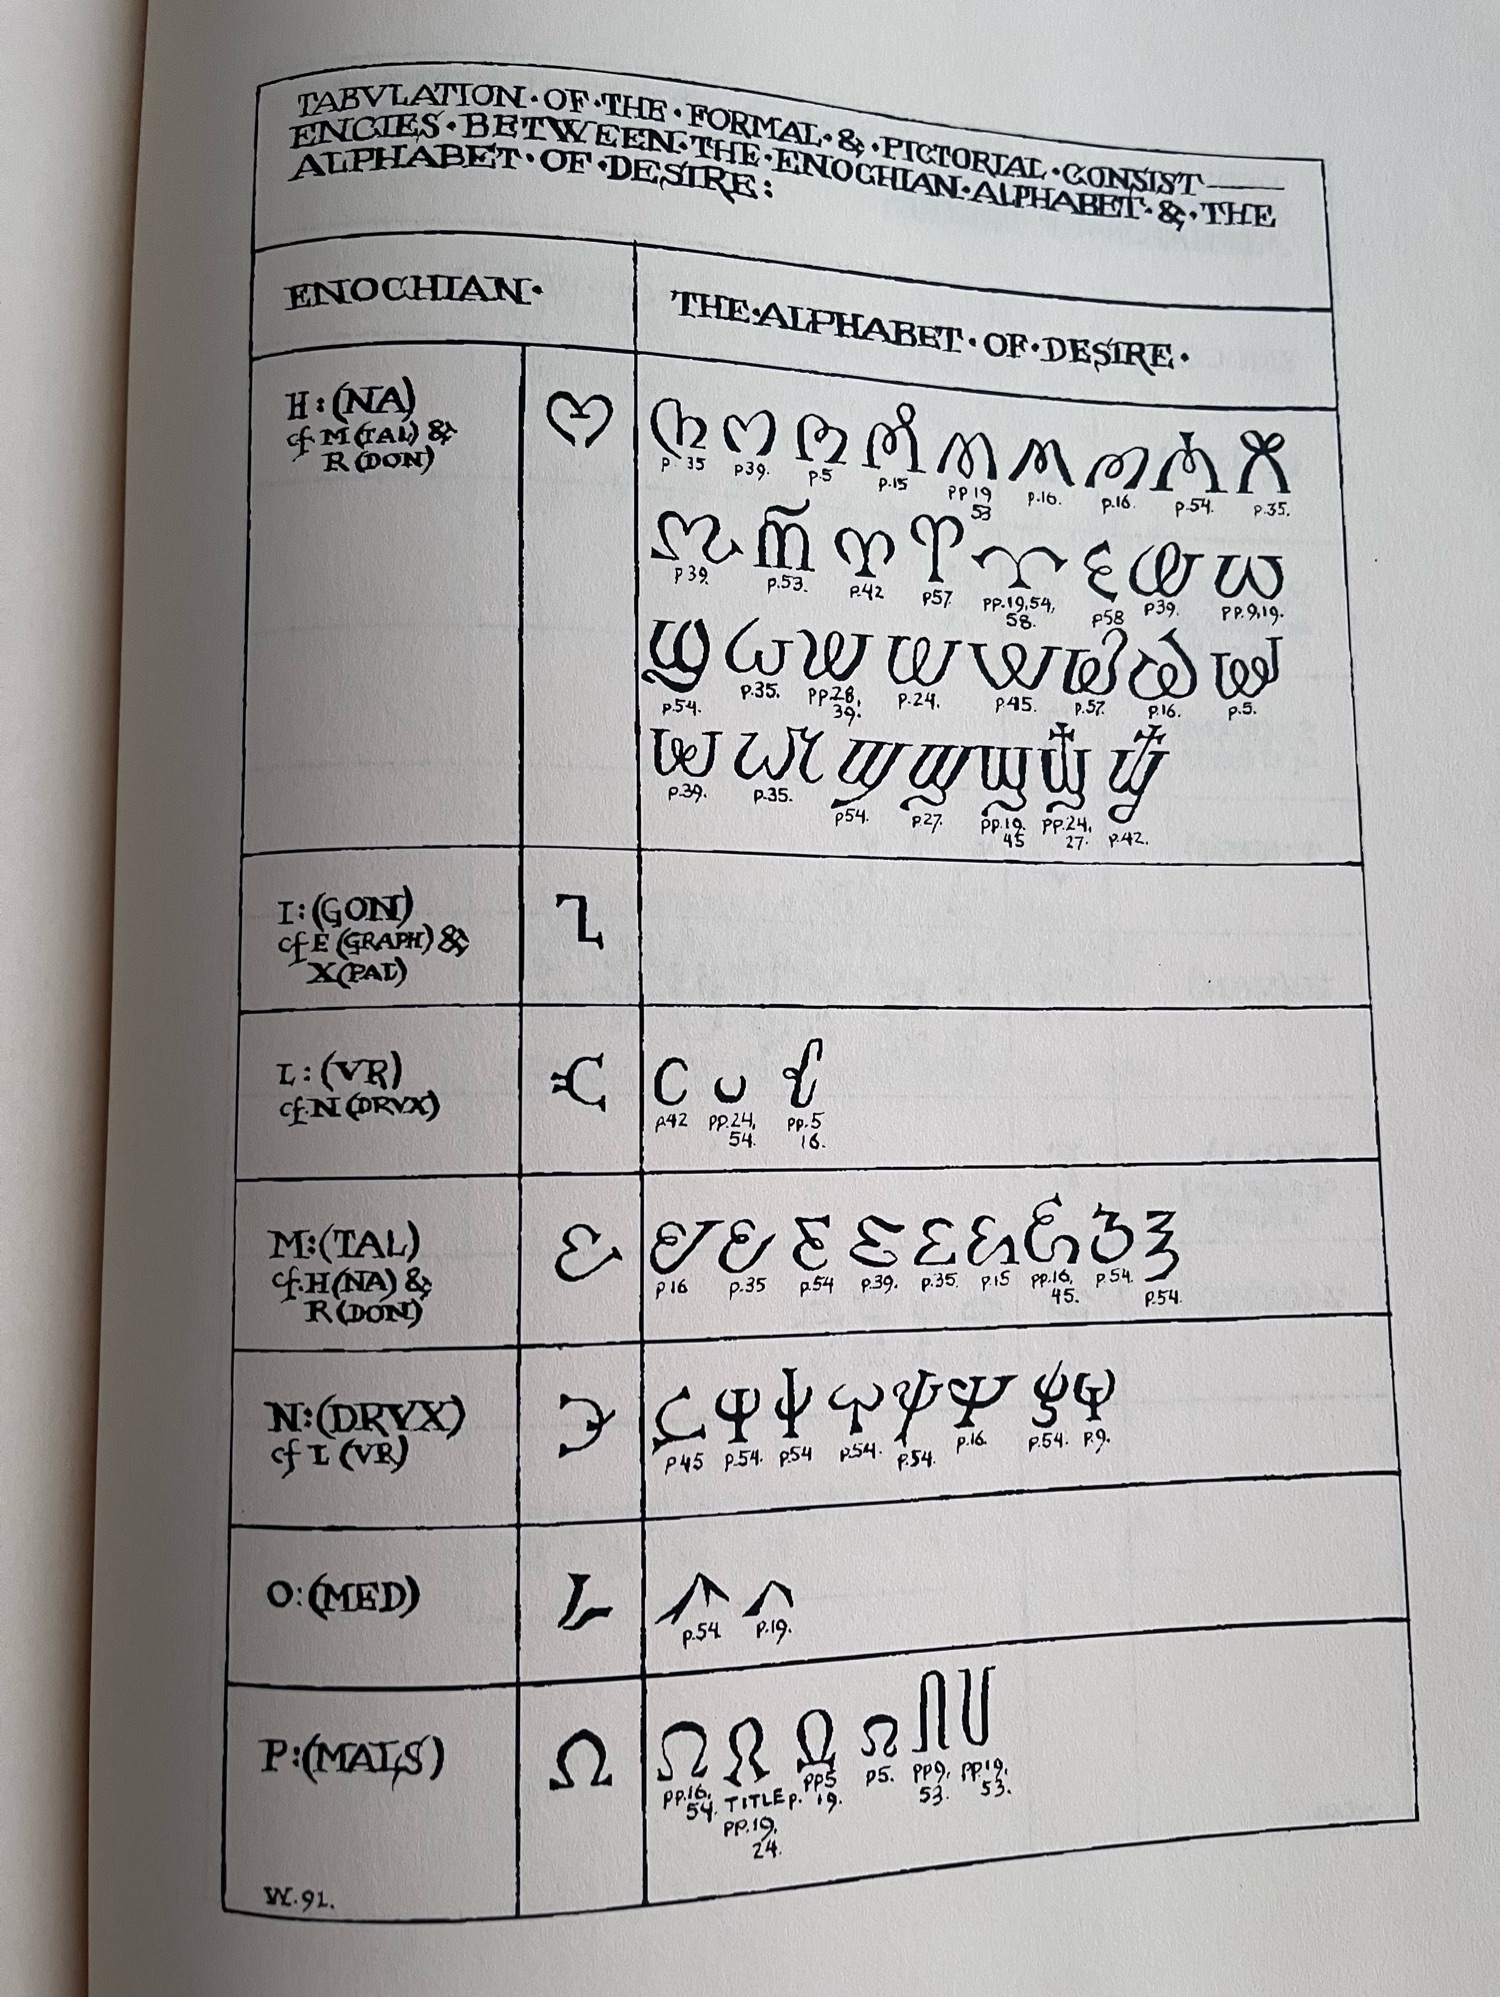 TABVLATION·OF·THE·FORMAL·&·PICTORIAL·CONSIST—
ENCIES·BETWEEN·THE·ENOCHIAN·ALPHABET·&·THE
ALPHABET·OF·DESIRE:
ENOCHIAN·
THE·ALPHABET·OF·DESIRE·
H:(NA)
cf M(TAL) &
R(DON)
p.35 p39. p.5 p.15 pp19 p.16. p.16. p.54. p.35.
53
p39. p.53. p.42 p57. pp.19,54, p58 p39. pp.9,19.
58.
p.54. p.35. pp.28, p.24. p.45. p.57. p.16. p.5.
39.
p.39. p.35. p54. p.27. pp.19. pp.24, p.42.
45 27.
I:(GON)
cf E (GRAPH) &
X(PAL)
L:(VR)
cf.N(DRVX)
p42 pp.24, pp.5
54. 16.
M:(TAL)
cf.H(NA) &
R(DON)
p16 p.35 p.54 p.39. p.35. p.15 pp.16, p.54. p.54.
45.
N:(DRVX)
cf L (VR)
p45 p.54. p.54 p.54. p.54. p.16. p.54. p.9.
O:(MED)
p.54. p.19.
P:(MALS)
Ω
pp.16, TITLE p. pp5 p5. pp9, pp.19,
54. pp.19, 19. 53. 53.
24.
W.91.